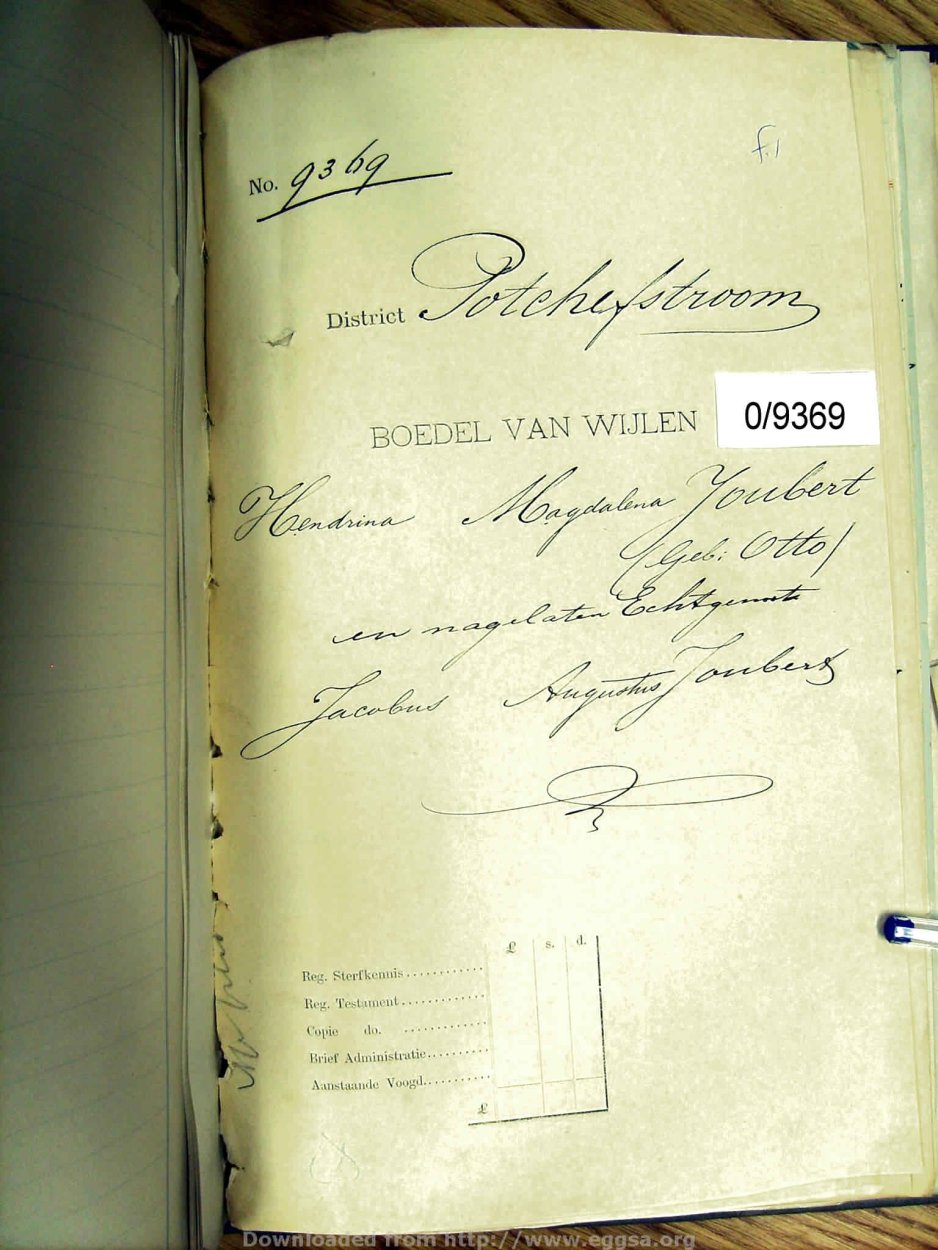 No. 9369
f.1
District Potchefstroom
BOEDEL VAN WIJLEN
0/9369
Hendrina Magdalena Joubert
(Geb: Otto)
en nagelaten Echtgenoote
Jacobus Augustus Joubert
£ s. d.
Reg. Sterfkennis............
Reg. Testament.............
Copie do. .............
Brief Administratie..........
Aanstaande Voogd...........
£
Downloaded from http://www.eggsa.org